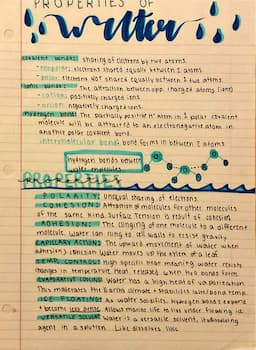 PROPERTIES OF
Water
covalent bonds: sharing of electrons by two atoms.
- nonpolar: electrons shared equally between 2 atoms
- polar: electrons NOT shared equally between 2 atoms.
ionic bonds: The attraction between opp. charged atoms (ions)
- cation: positively charged ions.
- anion: negatively charged ions.
hydrogen bonds: The partially positive H+ atom in a polar covalent
molecule will be attracted to an electronegative atom in
another polar covalent bond.
- intermolecular bond: bond forms in between 2 atoms
Hydrogen bonds between
water molecules
PROPERTIES
POLARITY: Unequal sharing of electrons.
COHESION: Attraction of molecules for other molecules
of the same kind. Surface Tension is result of cohesion
ADHESION: The clinging of one molecule to a different
molecule. Water can cling to cell walls to resist gravity
CAPILLARY ACTION: The upward movement of water when
adhesion > cohesion. Water moves up the xylem of a leaf
TEMP. CONTROL: High specific heat meaning water resists
changes in temperature. heat released when H+ bonds form
EVAPORATIVE COOLING: Water has a high heat of vaporization
This moderates the Earth's climate + stabilizes it w/ temp.
ICE FLOATING: As water solidifies, Hydrogen bonds expand
+ become less dense. Allows marine life to live under floating ice
VERSATILE SOLVENT: Water is a versatile solvent, (hydrolizing
agent in a solution. Like dissolves like